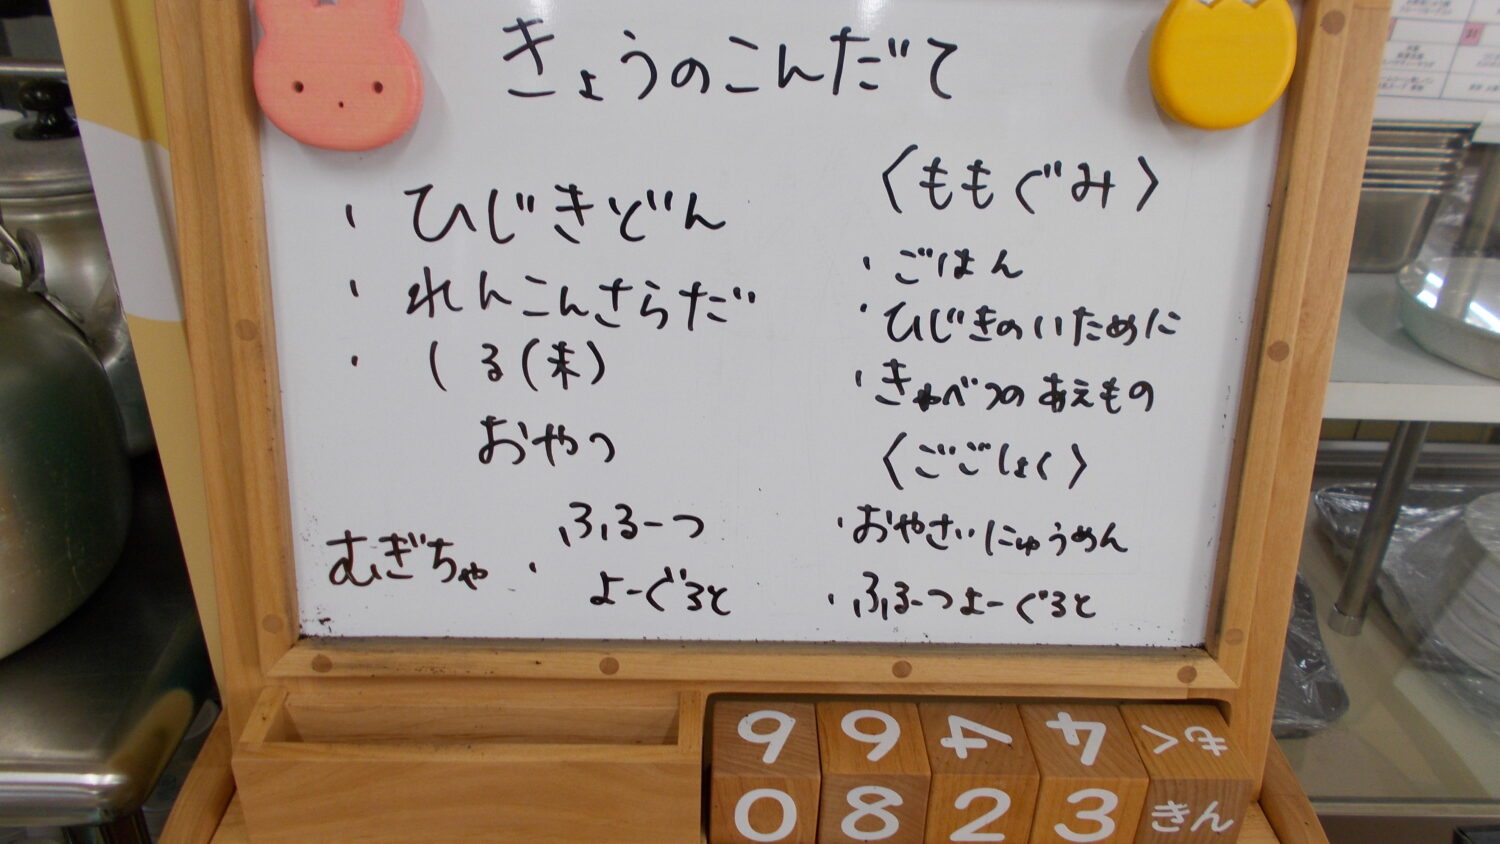 きょうのこんだて
・ひじきどん
・れんこんさらだ
・しる(末)
おやつ
むぎちゃ
・ふるーつ
よーぐると
〈ももぐみ〉
・ごはん
・ひじきのいために
・きゃべつのあえもの
〈ごごしょく〉
・おやさいにゅうめん
・ふるーつよーぐると
9 6 4 4 もく
0 8 2 3 きん